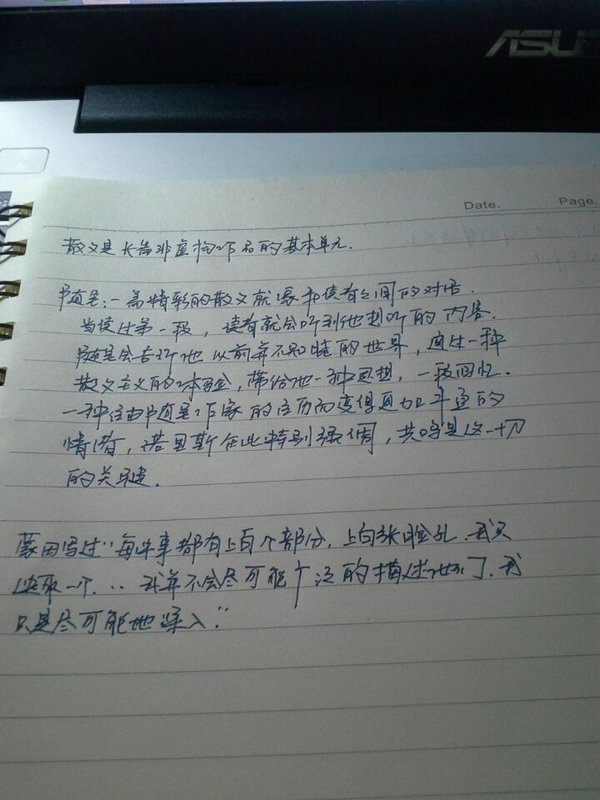 ASUS
Date. Page.
散文是长篇非虚构作品的基本单元.
随笔:一篇精彩的散文就像和读者之间的对话.
当读过第一段,读者就会听到他想听的内容.
随笔会告诉他以前并不知晓的世界,通过一种
散文主义的体验,带给他一种思想,一段回忆.
一种经由随笔作家的经历而变得更加丰盈的
情绪,诺里斯在此特别强调,共鸣是这一切
的关键.
蒙田写过"每件事都有上百个部分,上百张脸孔.我只
选取一个...我并不会尽可能广泛的描述他们了.我
只是尽可能地深入."